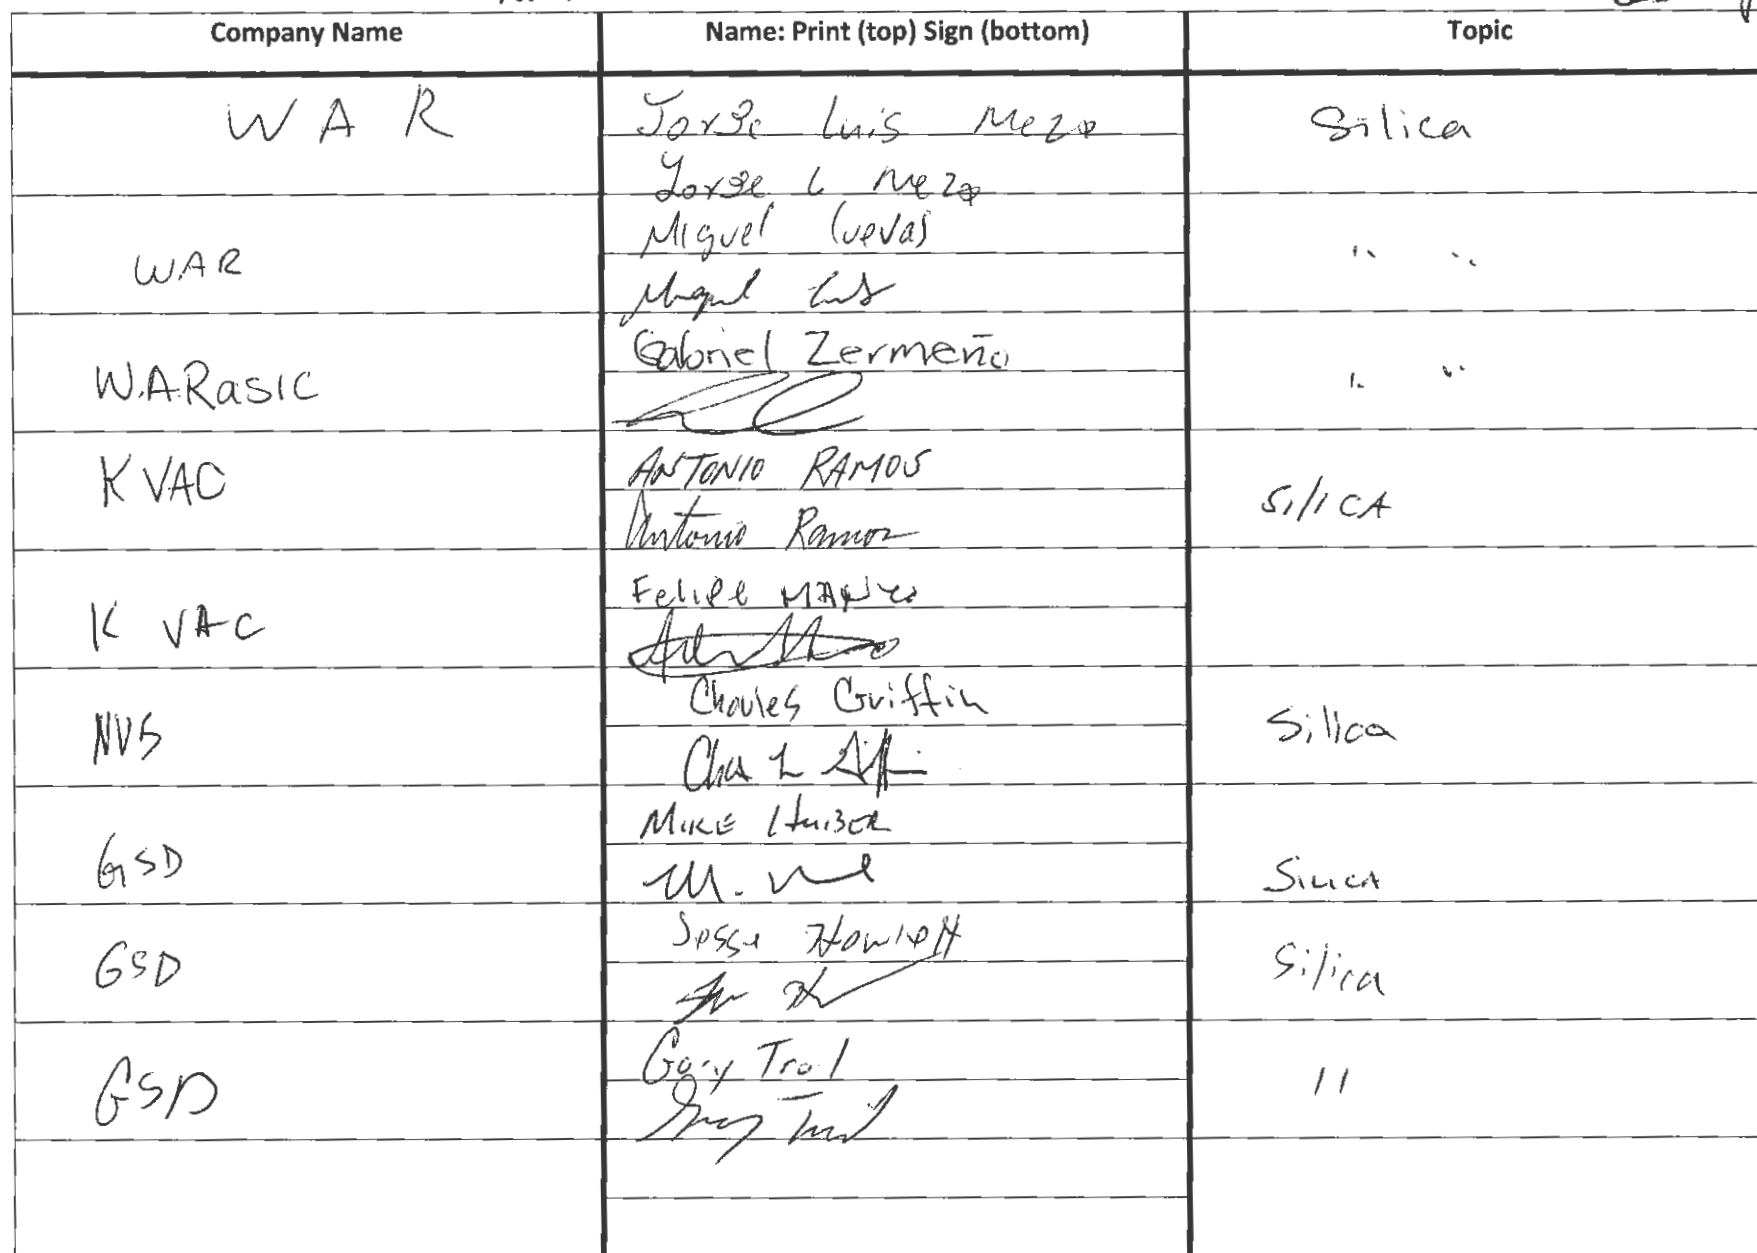 Company Name Name: Print (top) Sign (bottom) Topic
W A R Jorge Luis Meza Silica
Jorge L Meza
WAR Miguel Cuevas " "
Miguel
W.A.Rasic Gabriel Zermeño " "
K VAC ANTONIO RAMOS SilICA
Antonio Ramos
K VAC Felipe
NVS Charles Griffin Silica
Chas L
GSD MIKE HUIBER SILICA
M.
GSD Jesse Howlett Silica
GSD Gary Trail "
Gary Trail